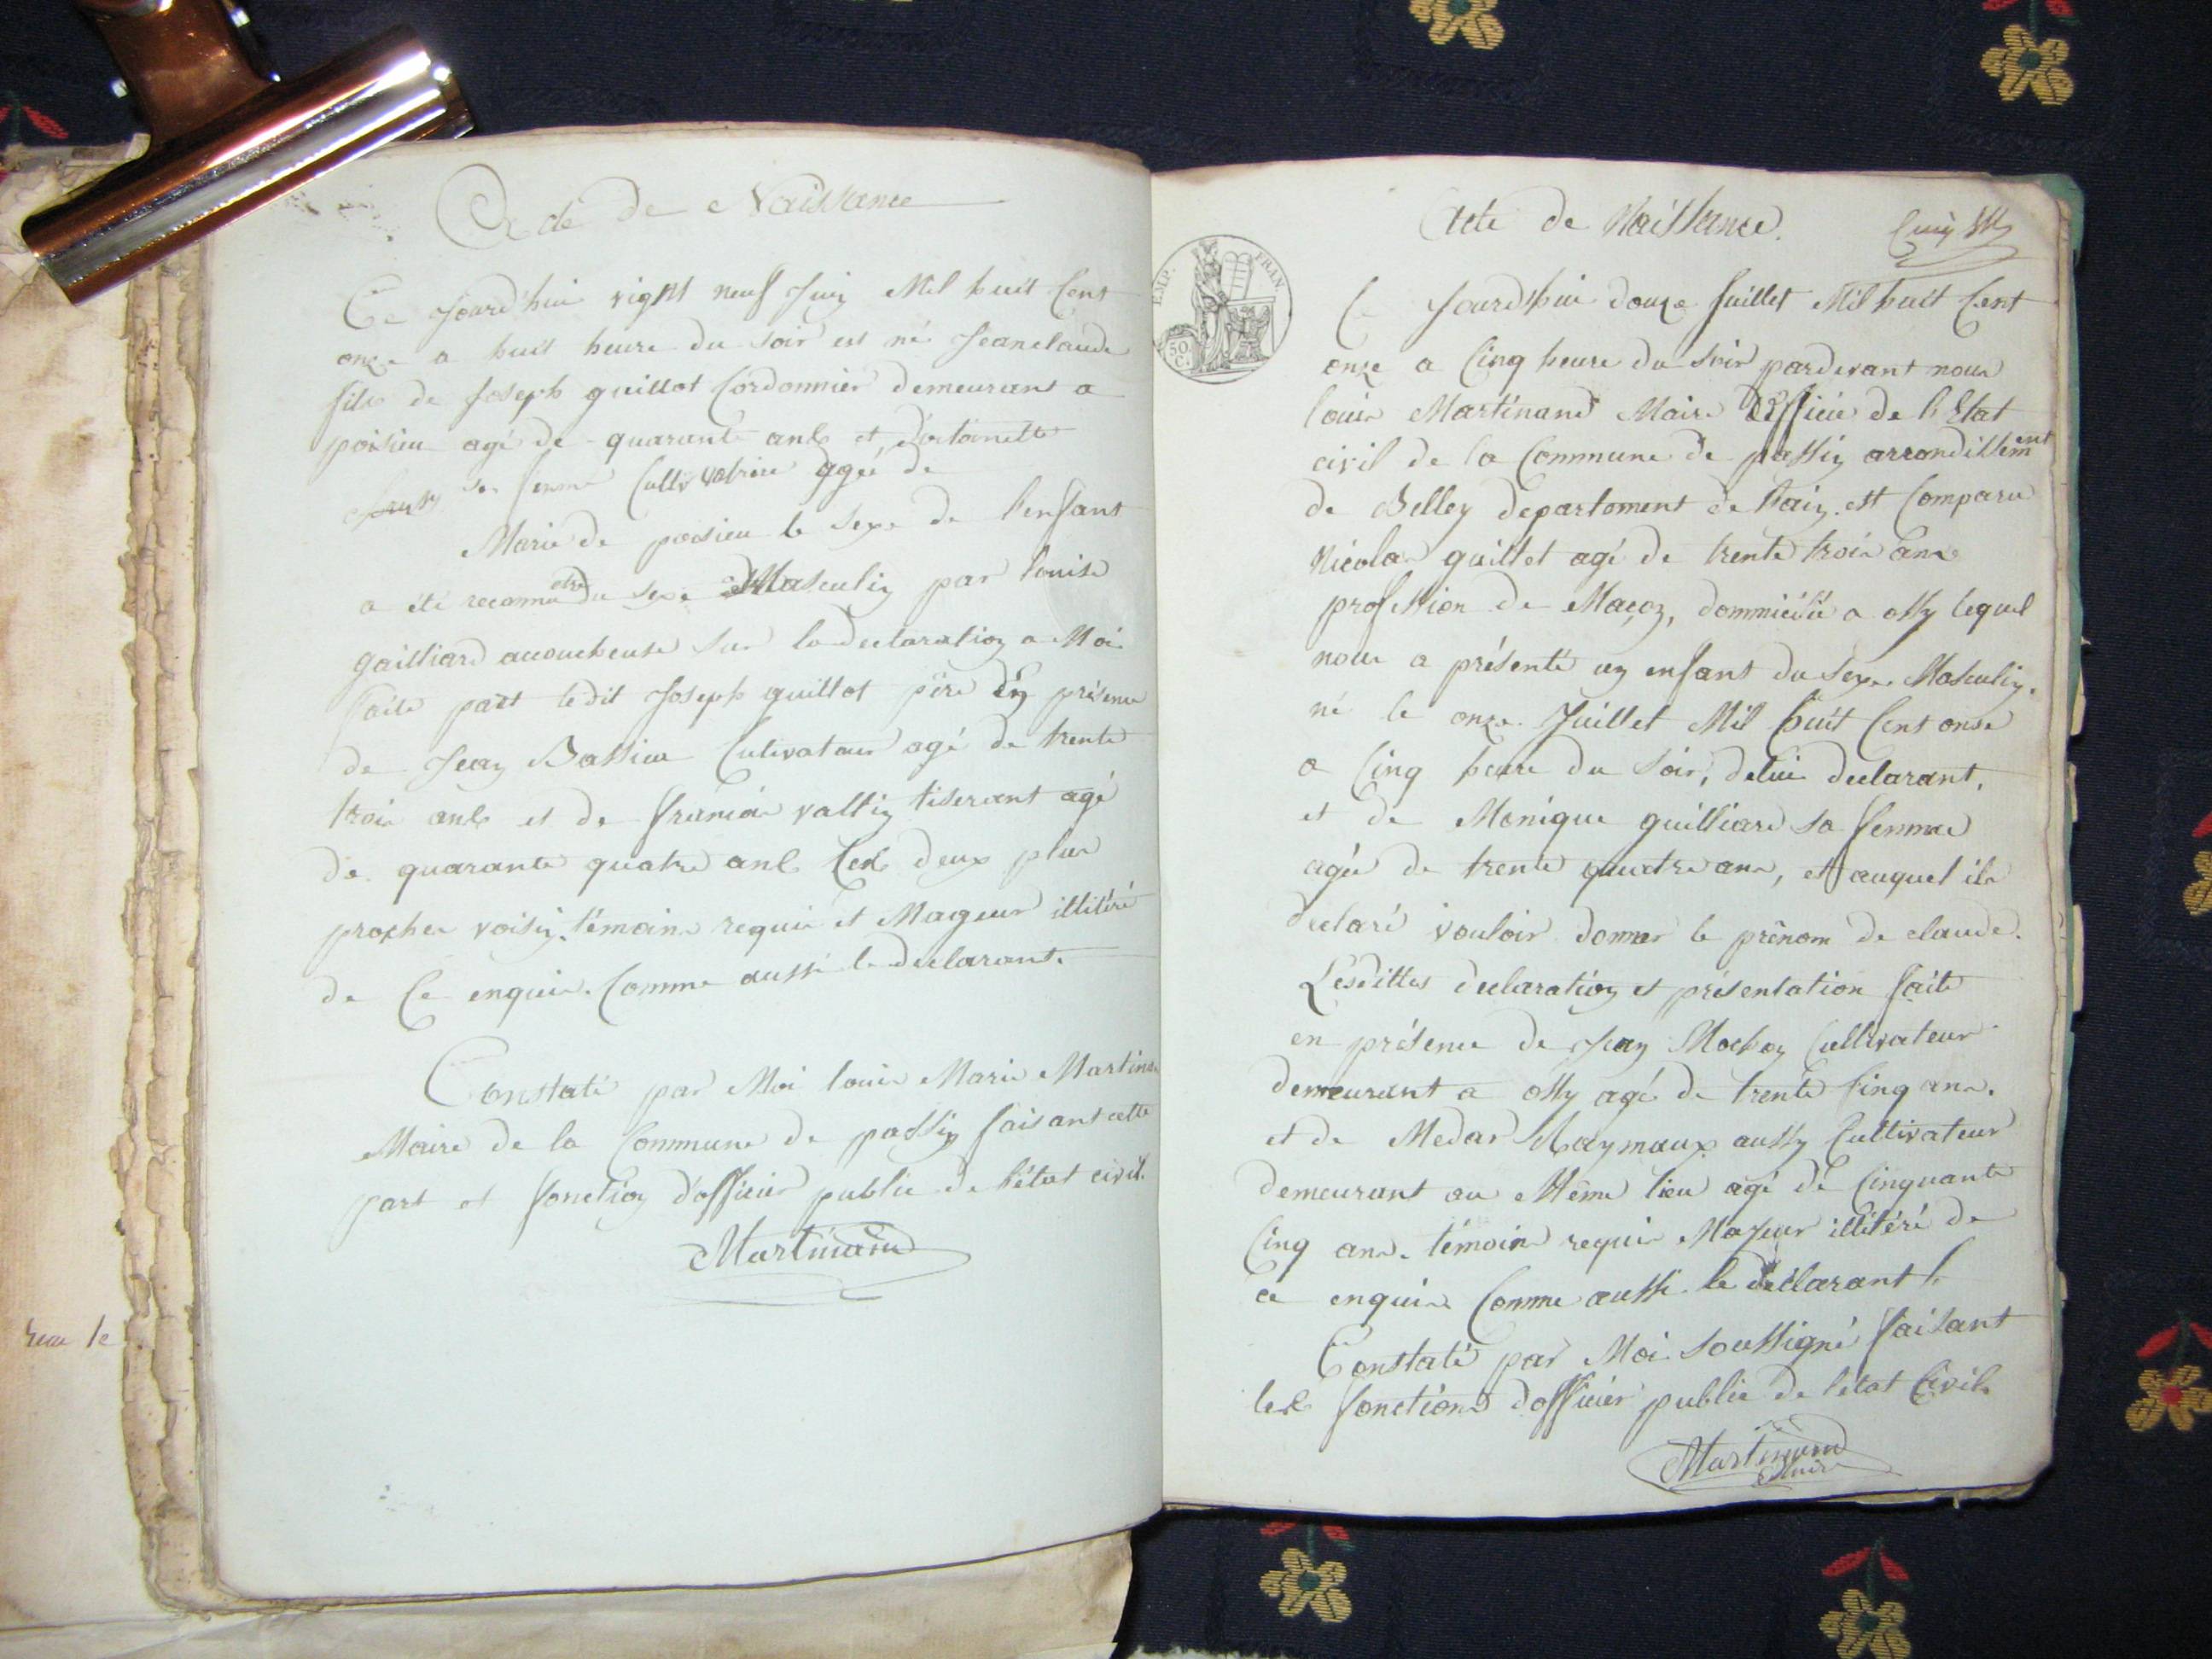 Acte de Naissance
Ce Jourd'hui vignt neuf Juin Mil huit Cent
onze a huit heure du soir est né Jeanclaude
fils de Joseph guillot Cordonnier demeurant a
poisieu agé de quarante ans et
sa femme Cultivatrice agée de
Marié de poisieu le sexe de l'enfant
a été reconnu etre du sexe Masculin par louise
gailliard acoucheuse sur la declaration a Moi
faite part ledit Joseph guillot père En présence
de Jean Bassieu Cultivateur agé de trente
trois ans et de francois vallin tiserant agé
de quarante quatre ans les deux plus
proches voisin témoins requis et Mageur illitéré
de Ce enquis. Comme aussi le declarant.
Constaté par Moi louis Marie Martinand
Maire de la Commune de passin faisant cette
part et fonction d'officier public de l'état civil.
Martinand
Acte de Naissance.
Cinq
Ce Jourdhui douze Juillet Mil huit Cent
onze a Cinq heure du soir pardevant nous
louis Martinand Maire Officier de l'Etat
civil de la Commune de passin arrondissement
de Belley département de l'ain. est Comparu
Nicolas guillet agé de trente trois ans
profession de Maçon, dommicilié a ossy lequel
nous a présenté un enfant du sexe Masculin.
né le onze Juillet Mil huit Cent onse
a Cinq heure du soir, delui declarant,
et de Monique guilliard sa femme
agée de trente quatre ans, et auquel ila
declaré vouloir donner le prénom de claude.
Lesdittes declaration et présentation faite
en présence de Jean Mochon Cultivateur
demeurant a ossy agé de trente Cinq ans.
et de Medar Raymaux aussy Cultivateur
demeurant au Même lieu agé de Cinquante
Cinq ans. témoins requis Majeur illitéré de
ce enquis. Comme aussi le déclarant.
Constaté par Moi soussigné faisant
les fonctions d'officier public de l'état Civil.
Martinand
Maire
EMP. FRAN
50
C.